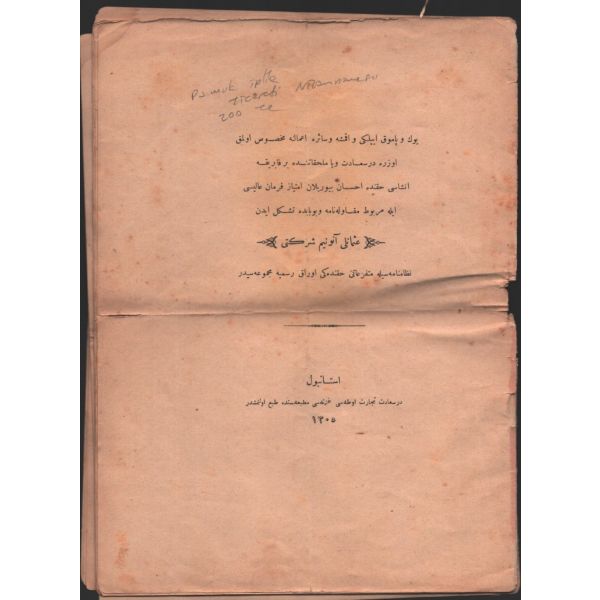 Pamuk ipliği Nizamnamesi
ticareti
200 TL
یوك و پاموق ایپلكی و اقمشه و سائره اعمالنه مخصوص اولمق
اوزره درسعادت ویا ملحقاتنده بر فابریقه
انشاسی حقنده احسان بیوریلان امتیاز فرمان عالیسی
ایله مربوط مقاوله‌نامه و بوبابده تشكل ایدن
عثمانلی آنونیم شركتی
نظامنامه‌سیله متفرعاتی حقنده‌كی اوراق رسمیه مجموعه‌سیدر
استانبول
درسعادت تجارت اوطه‌سی غزته‌سی مطبعه‌سنده طبع اولنمشدر
١٣٠٥